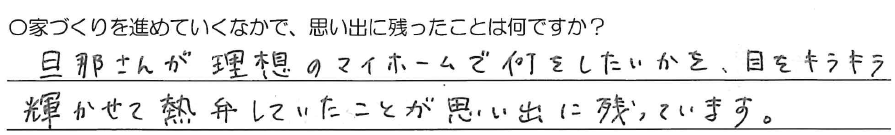 ○家づくりを進めていくなかで、思い出に残ったことは何ですか？
旦那さんが理想のマイホームで何をしたいかを、目をキラキラ
輝かせて熱弁していたことが思い出に残っています。